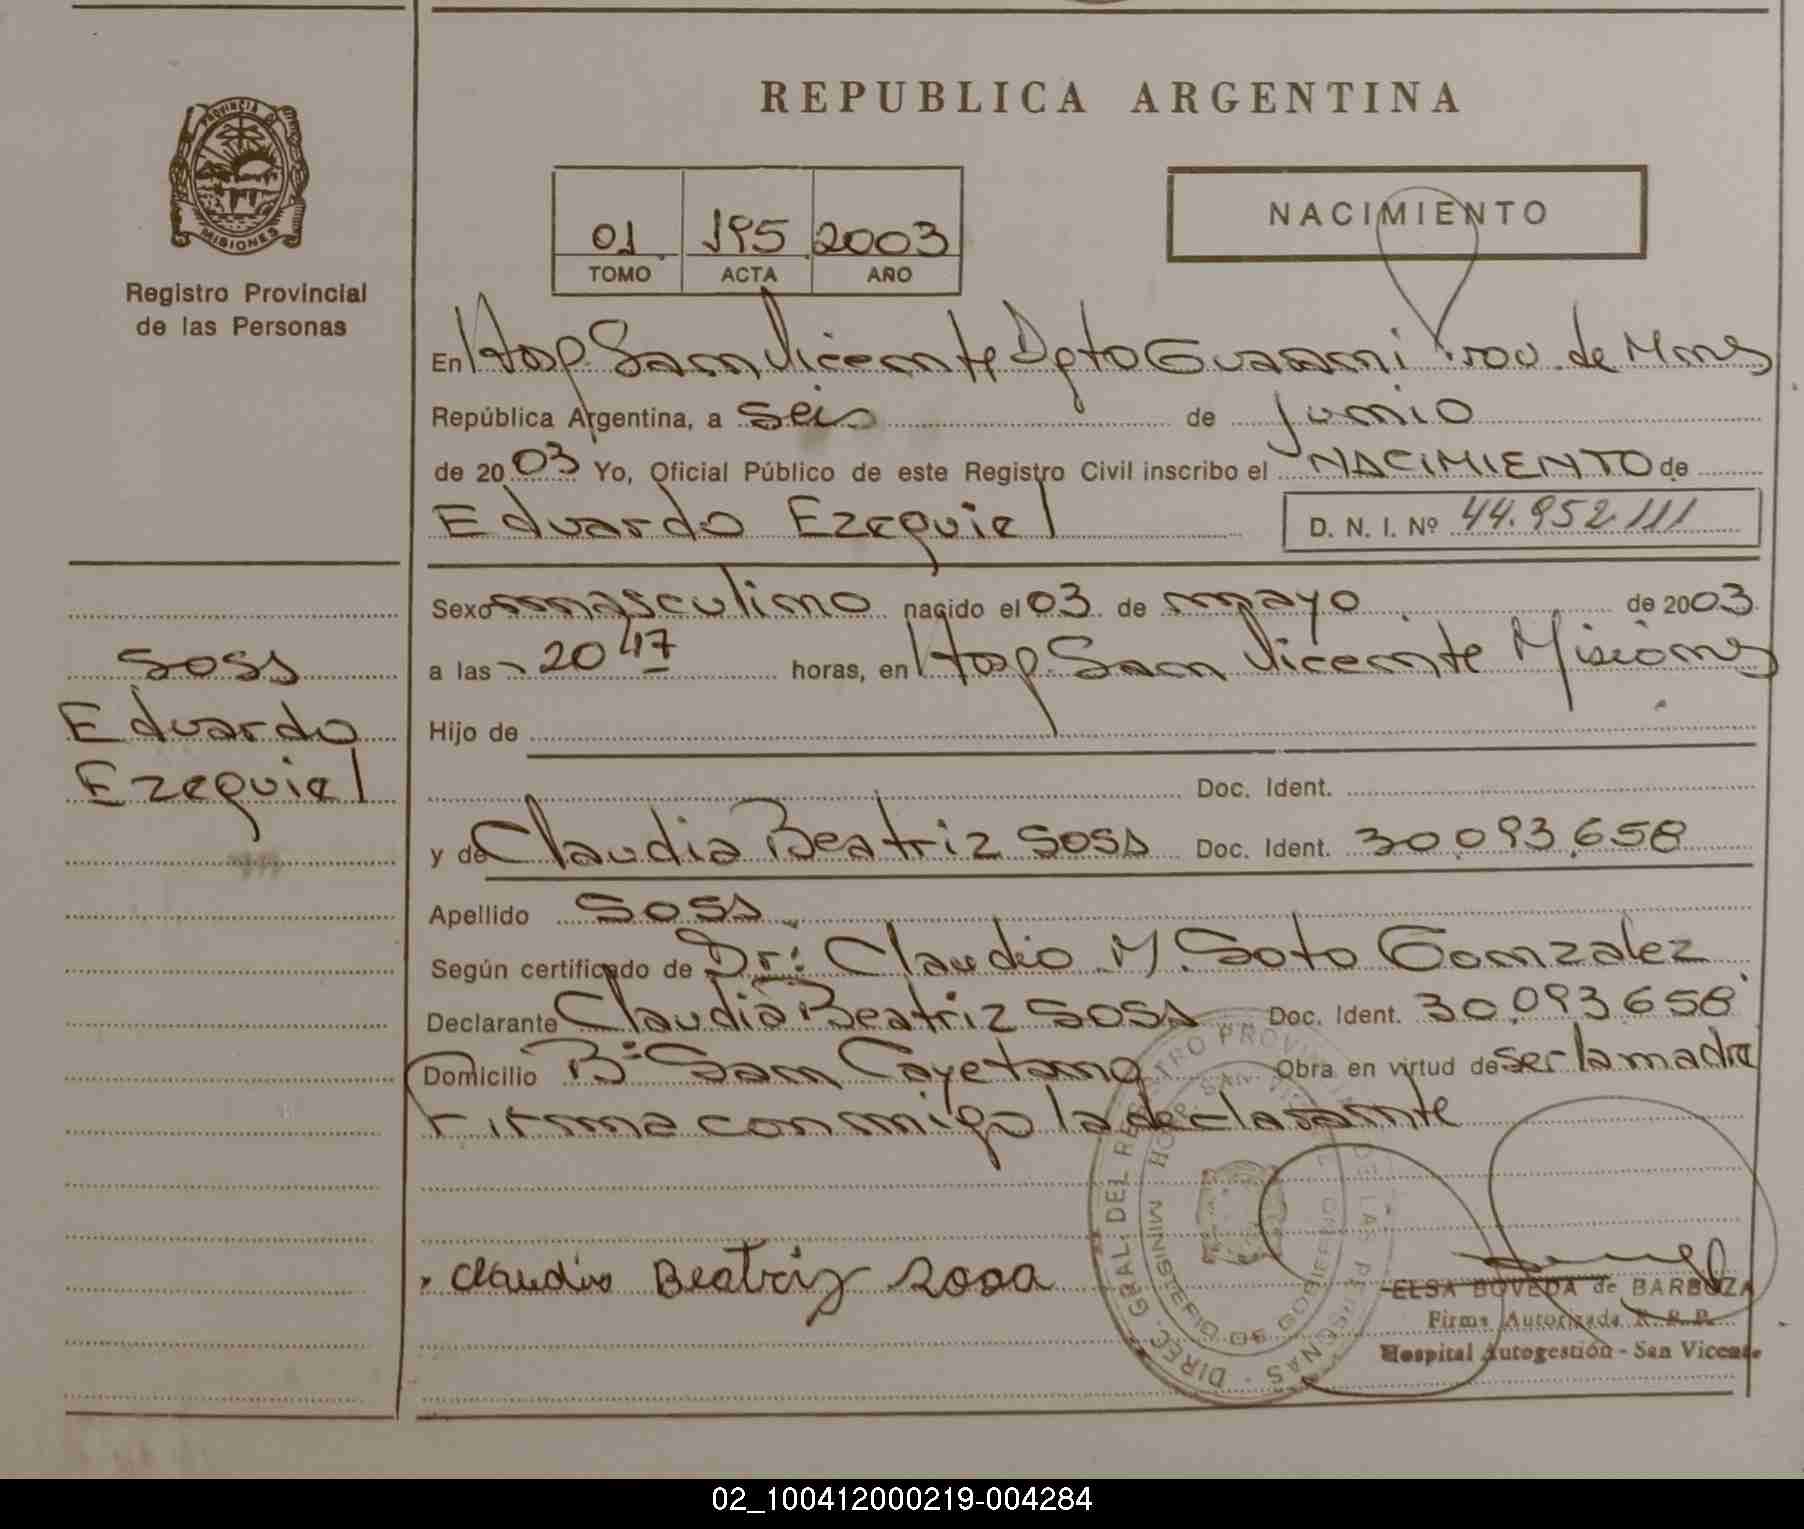 REPUBLICA ARGENTINA
PROVINCIA DE
MISIONES
Registro Provincial
de las Personas
01 195 2003
TOMO ACTA AÑO
NACIMIENTO
En Hosp. San Vicente Dpto Guarani Prov. de Mnes
República Argentina, a seis de junio
de 2003 Yo, Oficial Público de este Registro Civil inscribo el NACIMIENTO de
Eduardo Ezequiel D. N. I. Nº 44.952 111
Sexo masculino nacido el 03 de mayo de 2003
a las 20 47 horas, en Hosp. San Vicente Misiones
Hijo de
Doc. Ident.
y de Claudia Beatriz SOSS Doc. Ident. 30.093.658
Apellido SOSS
Según certificado de Dr: Claudio M. Soto Gonzalez
Declarante Claudia Beatriz SOSS Doc. Ident. 30.093658
Domicilio Bº San Cayetano Obra en virtud de ser la madre
Firma conmigo la declarante
Claudia Beatriz
SOSS
Eduardo
Ezequiel
DIREC. GRAL. DEL REGISTRO PROVINCIAL DE LAS PERSONAS
HOSP. SAN
MINISTERIO DE GOBIERNO
ELSA BOVEDA de BARBOZA
Firma Autorizada R. P. P.
Hospital Autogestión - San Vicente
02_100412000219-004284